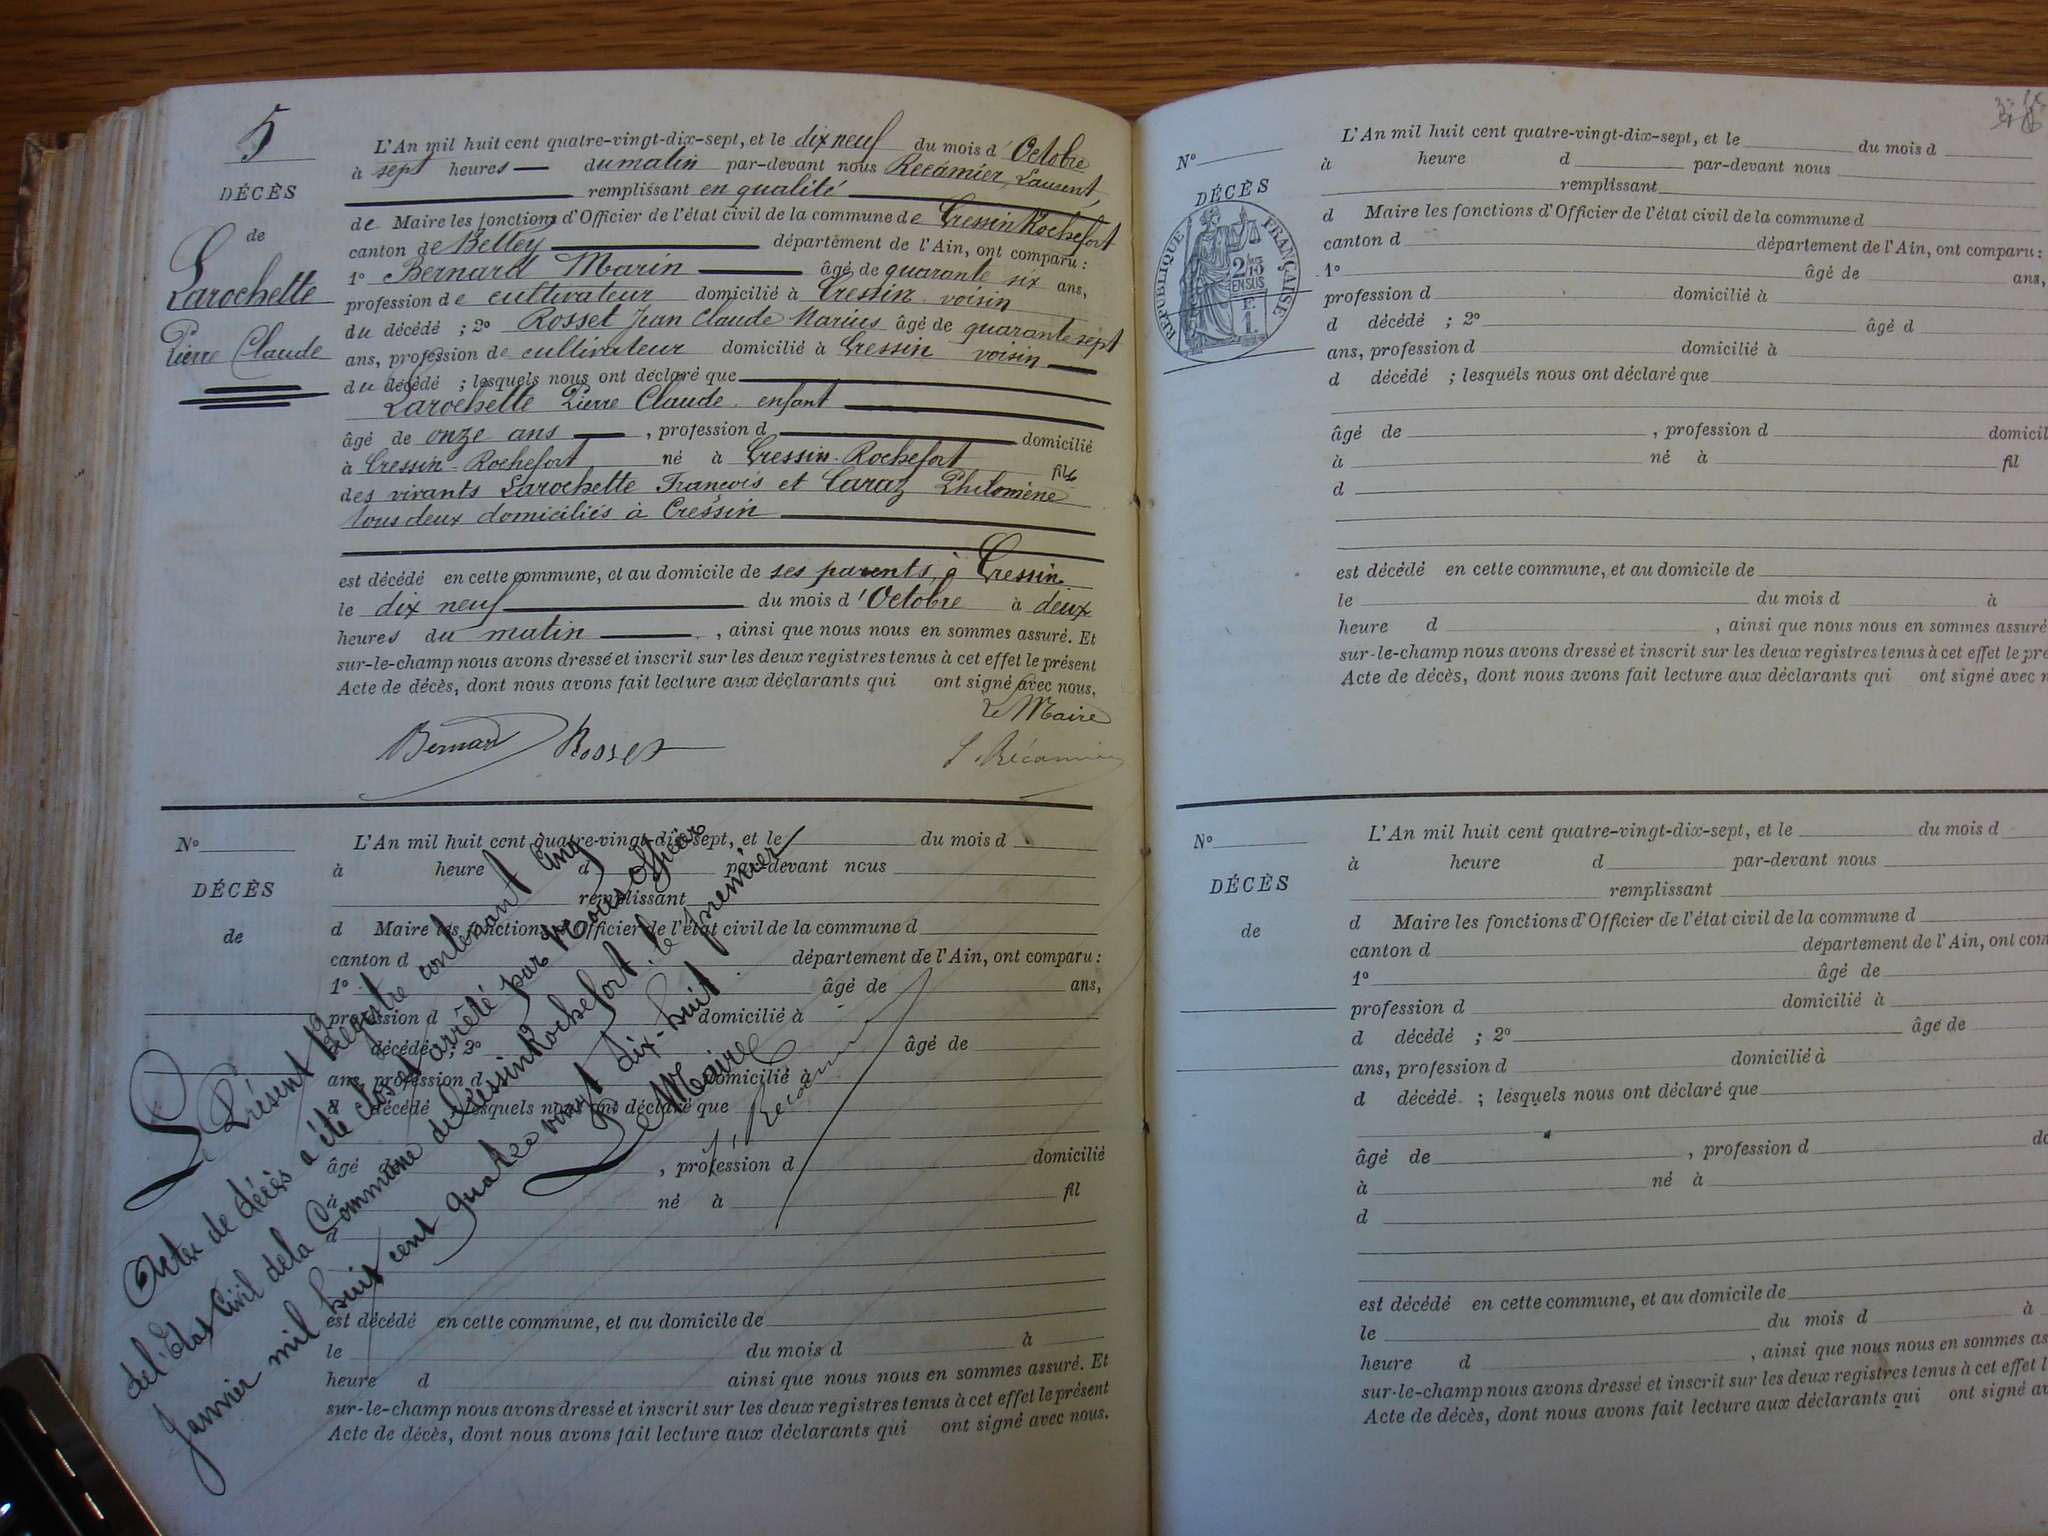 5
DÉCÈS
de
Larochette
Pierre Claude
L'An mil huit cent quatre-vingt-dix-sept, et le dix neuf du mois d'Octobre
à sept heures du matin par-devant nous Recamier, Laurent,
remplissant en qualité
de Maire les fonctions d'Officier de l'état civil de la commune de Cressin Rochefort
canton de Belley département de l'Ain, ont comparu :
1° Bernard Marin âgé de quarante six ans,
profession de cultivateur domicilié à Cressin voisin
du décédé ; 2° Rosset Jean Claude Marius âgé de quarante sept
ans, profession de cultivateur domicilié à Cressin voisin
du décédé ; lesquels nous ont déclaré que
Larochette Pierre Claude enfant
âgé de onze ans , profession d domicilié
à Cressin-Rochefort né à Cressin-Rochefort fils
des vivants Larochette François et Caraz Philomène
tous deux domiciliés à Cressin
est décédé en cette commune, et au domicile de ses parents, à Cressin
le dix neuf du mois d'Octobre à deux
heures du matin , ainsi que nous nous en sommes assuré. Et
sur-le-champ nous avons dressé et inscrit sur les deux registres tenus à cet effet le présent
Acte de décès, dont nous avons fait lecture aux déclarants qui ont signé avec nous,
Le Maire
Bernard Rosset L. Récamier
N°
DÉCÈS
de
L'An mil huit cent quatre-vingt-dix-sept, et le du mois d
à heure d par-devant nous
remplissant
d Maire les fonctions d'Officier de l'état civil de la commune d
canton d département de l'Ain, ont comparu :
1° âgé de ans,
profession d domicilié à
d décédé ; 2° âgé de
ans, profession d domicilié à
d décédé ; lesquels nous ont déclaré que
âgé de , profession d domicilié
à né à fil
d
est décédé en cette commune, et au domicile de
le du mois d à
heure d ainsi que nous nous en sommes assuré. Et
sur-le-champ nous avons dressé et inscrit sur les deux registres tenus à cet effet le présent
Acte de décès, dont nous avons fait lecture aux déclarants qui ont signé avec nous.
Le Présent Registre contenant Cinq
Actes de décès a été clos et arrêté par Nous Officier
de l'Etat Civil de la Commune de Cressin Rochefort, le premier
Janvier mil huit cent quatre vingt dix-huit.
Le Maire
L. Récamier
N°
DÉCÈS
RÉPUBLIQUE FRANÇAISE
2/10
EN SUS
F.
1.
L'An mil huit cent quatre-vingt-dix-sept, et le du mois d
à heure d par-devant nous
remplissant
d Maire les fonctions d'Officier de l'état civil de la commune d
canton d département de l'Ain, ont comparu :
1° âgé de ans,
profession d domicilié à
d décédé ; 2° âgé d
ans, profession d domicilié à
d décédé ; lesquels nous ont déclaré que
âgé de , profession d domicil
à né à fil
d
est décédé en cette commune, et au domicile de
le du mois d à
heure d , ainsi que nous nous en sommes assuré
sur-le-champ nous avons dressé et inscrit sur les deux registres tenus à cet effet le pré
Acte de décès, dont nous avons fait lecture aux déclarants qui ont signé avec n
N°
DÉCÈS
de
L'An mil huit cent quatre-vingt-dix-sept, et le du mois d
à heure d par-devant nous
remplissant
d Maire les fonctions d'Officier de l'état civil de la commune d
canton d département de l'Ain, ont com
1° âgé de
profession d domicilié à
d décédé ; 2° âgé de
ans, profession d domicilié à
d décédé ; lesquels nous ont déclaré que
âgé de , profession d do
à né à
d
est décédé en cette commune, et au domicile de
le du mois d à
heure d , ainsi que nous nous en sommes as
sur-le-champ nous avons dressé et inscrit sur les deux registres tenus à cet effet l
Acte de décès, dont nous avons fait lecture aux déclarants qui ont signé av